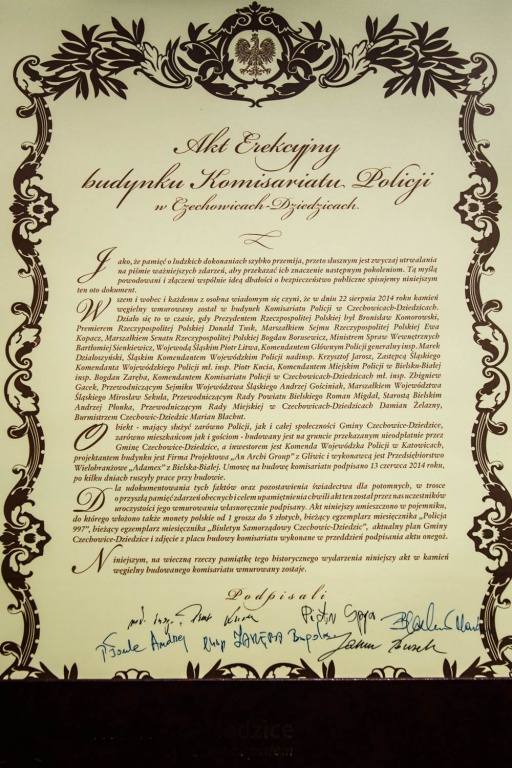 Akt Erekcyjny
budynku Komisariatu Policji
w Czechowicach-Dziedzicach.
Jako, że pamięć o ludzkich dokonaniach szybko przemija, przeto słusznym jest zwyczaj utrwalania
na piśmie ważniejszych zdarzeń, aby przekazać ich znaczenie następnym pokoleniom. Tą myślą
powodowani i złączeni wspólnie ideą dbałości o bezpieczeństwo publiczne spisujemy niniejszym
ten oto dokument.
Wszem i wobec i każdemu z osobna wiadomym się czyni, że w dniu 22 sierpnia 2014 roku kamień
węgielny wmurowany został w budynek Komisariatu Policji w Czechowicach-Dziedzicach.
Działo się to w czasie, gdy Prezydentem Rzeczypospolitej Polskiej był Bronisław Komorowski,
Premierem Rzeczypospolitej Polskiej Donald Tusk, Marszałkiem Sejmu Rzeczypospolitej Polskiej Ewa
Kopacz, Marszałkiem Senatu Rzeczypospolitej Polskiej Bogdan Borusewicz, Ministrem Spraw Wewnętrznych
Bartłomiej Sienkiewicz, Wojewodą Śląskim Piotr Litwa, Komendantem Głównym Policji generalny insp. Marek
Działoszyński, Śląskim Komendantem Wojewódzkim Policji nadinsp. Krzysztof Jarosz, Zastępcą Śląskiego
Komendanta Wojewódzkiego Policji mł. insp. Piotr Kucia, Komendantem Miejskim Policji w Bielsku-Białej
insp. Bogdan Zaręba, Komendantem Komisariatu Policji w Czechowicach-Dziedzicach mł. insp. Zbigniew
Gacek, Przewodniczącym Sejmiku Województwa Śląskiego Andrzej Gościniak, Marszałkiem Województwa
Śląskiego Mirosław Sekuła, Przewodniczącym Rady Powiatu Bielskiego Roman Migdał, Starostą Bielskim
Andrzej Płonka, Przewodniczącym Rady Miejskiej w Czechowicach-Dziedzicach Damian Żelazny,
Burmistrzem Czechowic-Dziedzic Marian Błachut.
Obiekt - mający służyć zarówno Policji, jak i całej społeczności Gminy Czechowice-Dziedzice,
zarówno mieszkańcom jak i gościom - budowany jest na gruncie przekazanym nieodpłatnie przez
Gminę Czechowice-Dziedzice, a inwestorem jest Komenda Wojewódzka Policji w Katowicach,
projektantem budynku jest Firma Projektowa „An Archi Group" z Gliwic i wykonawcą jest Przedsiębiorstwo
Wielobranżowe „Adamex" z Bielska-Białej. Umowę na budowę komisariatu podpisano 13 czerwca 2014 roku,
po kilku dniach ruszyły prace przy budowie.
Dla udokumentowania tych faktów oraz pozostawienia świadectwa dla potomnych, w trosce
o przyszłą pamięć zdarzeń obecnych i celem upamiętnienia chwili akt ten został przez nas uczestników
uroczystości jego wmurowania własnoręcznie podpisany. Akt niniejszy umieszczono w pojemniku,
do którego włożono także monety polskie od 1 grosza do 5 złotych, bieżący egzemplarz miesięcznika „Policja
997", bieżący egzemplarz miesięcznika „Biuletyn Samorządowy Czechowic-Dziedzic", aktualny plan Gminy
Czechowice-Dziedzice i zdjęcie z placu budowy komisariatu wykonane w przeddzień podpisania aktu onegoż.
Niniejszym, na wieczną rzeczy pamiątkę tego historycznego wydarzenia niniejszy akt w kamień
węgielny budowanego komisariatu wmurowany zostaje.
Podpisali